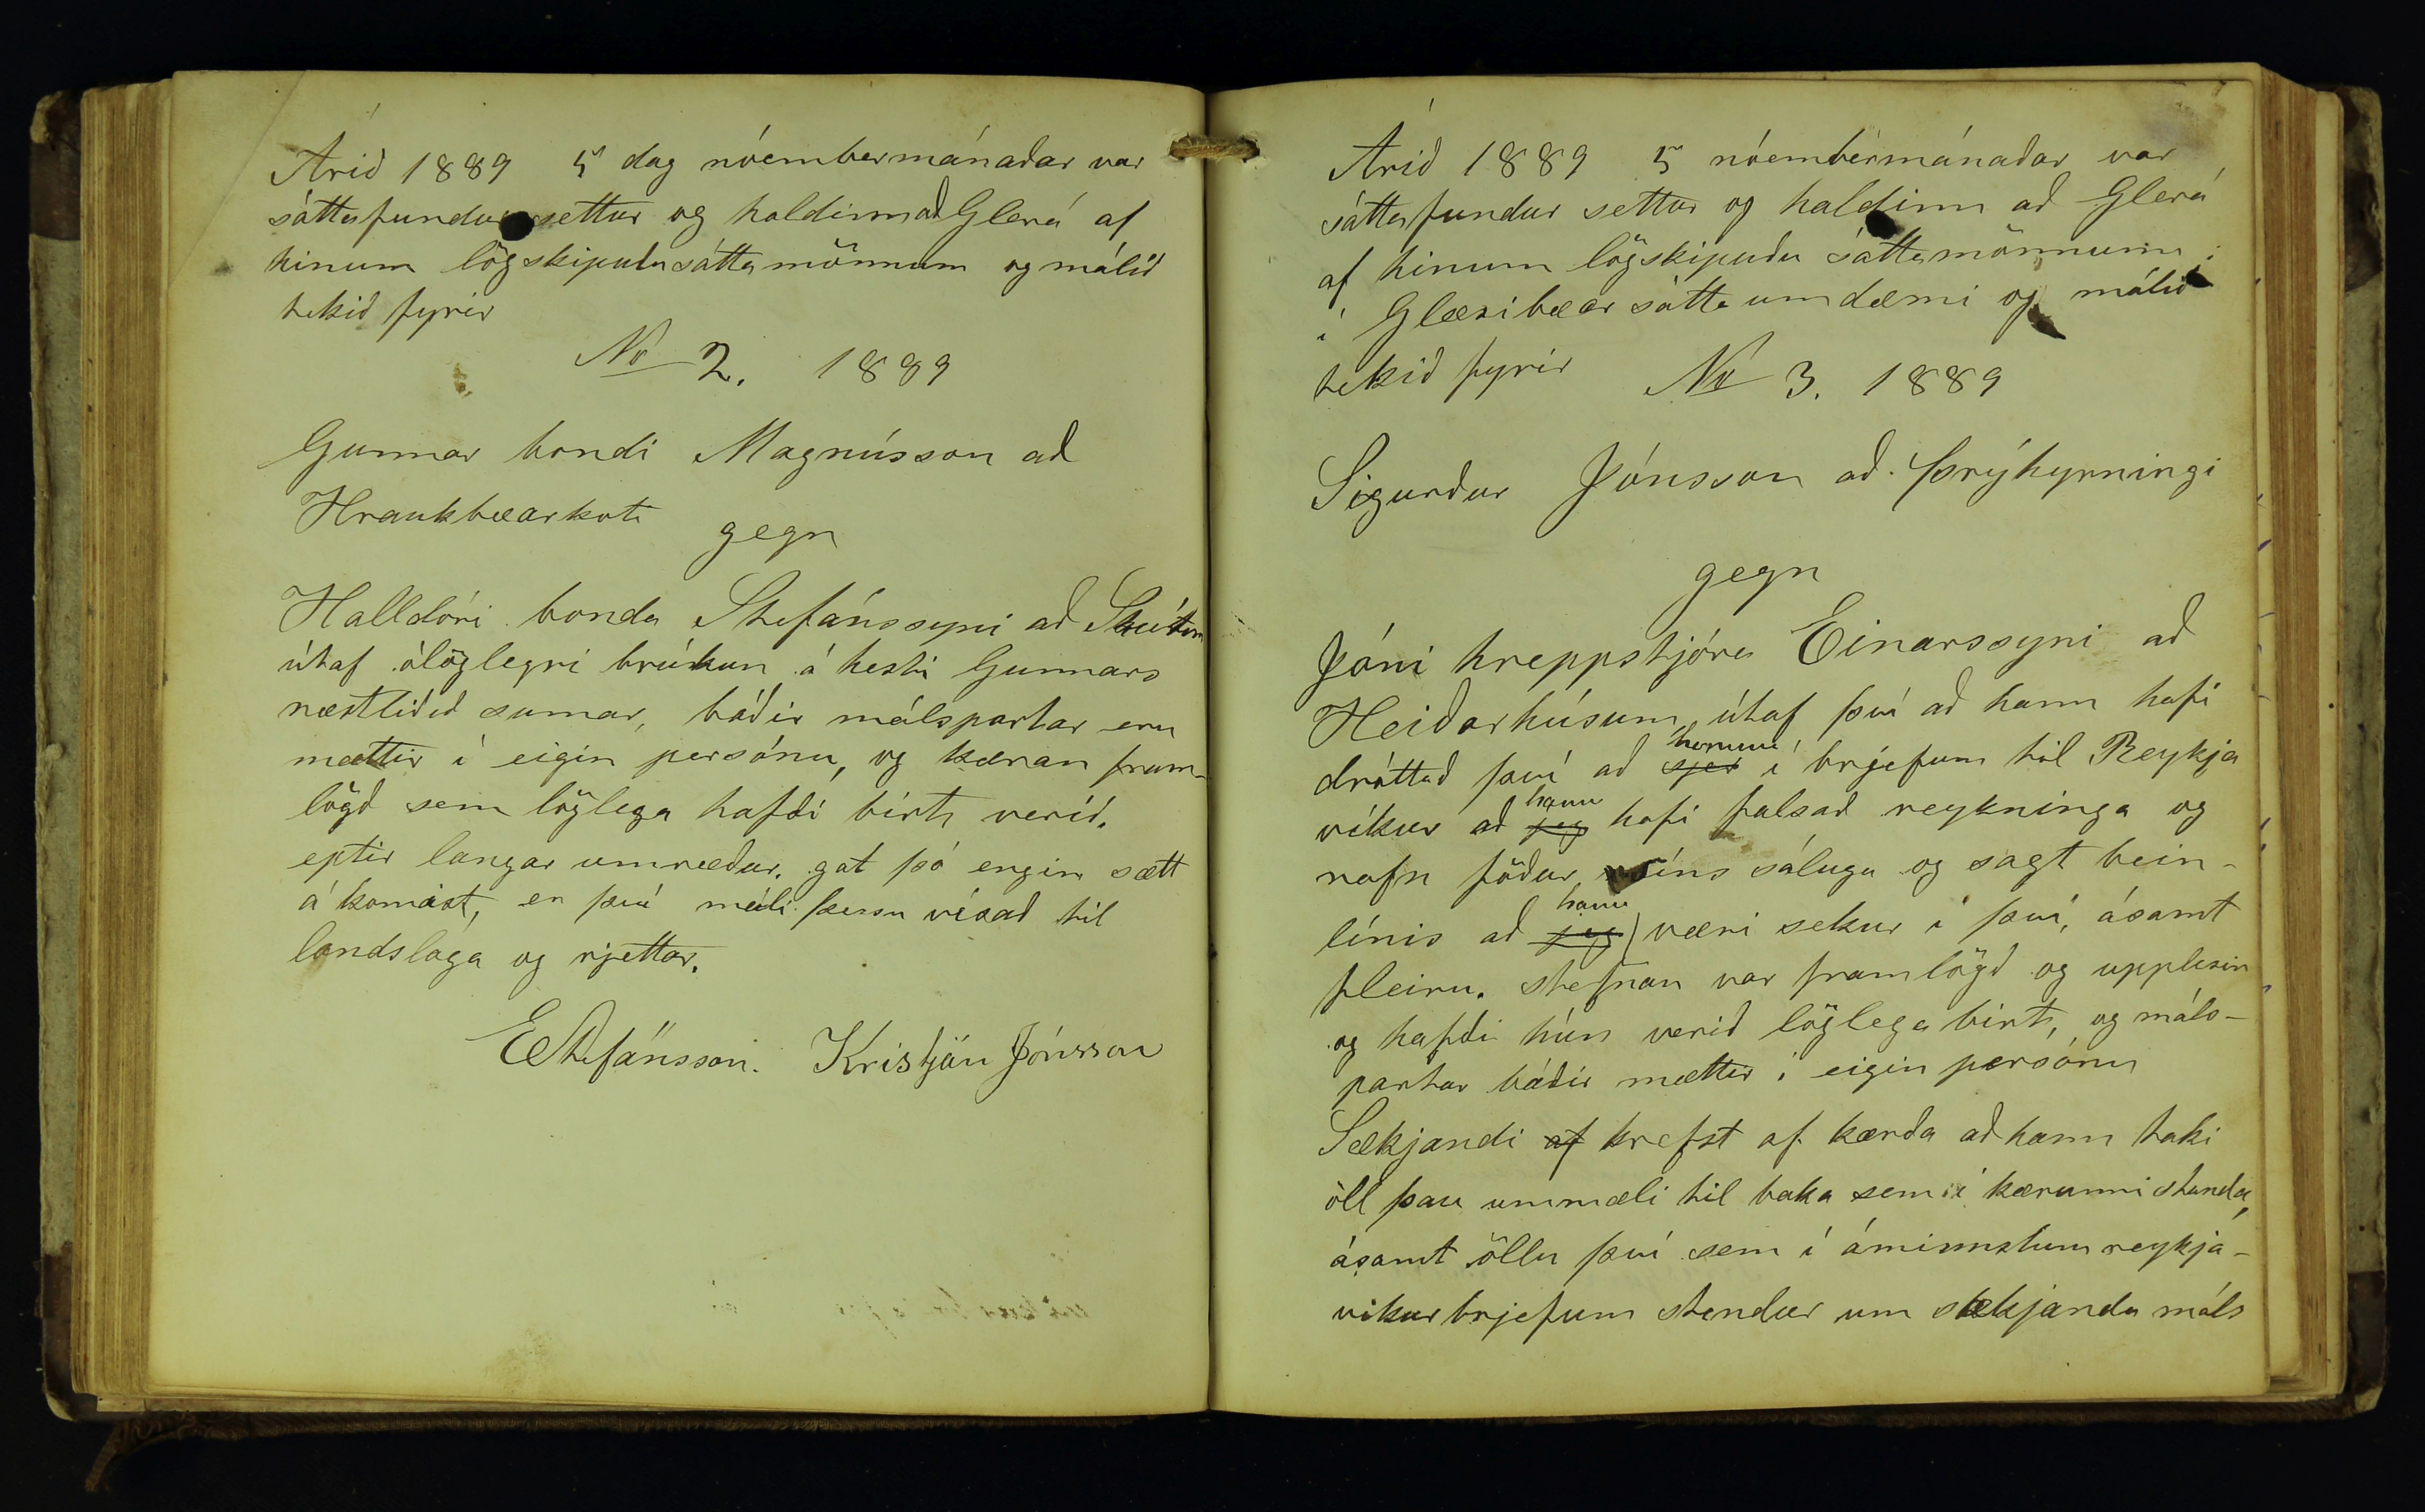 Árið 1889 5 dag nóembermánaðar var
sáttafundur settur og haldinn að Glerá af
hinum lögskipuðu sáttamönnum og málið
tekið fyrir
No 2. 1889
Gunnar bondi Magnússon að
Hraukbæarkoti
gegn
Halldóri bonda Stefánssyni að Skútum
útaf ólöglegri brúkun á hesti Gunnars
næstliðið sumar, báðir málspartar eru
mættir í eigin persónu, og kæran fram-
lögð sem löglega hafði birt verið.
eptir langar umræður. gat þó engin sætt
á komist, er því máli þessu vísað til
landslaga og rjettar.
EStefánsson. Kristján Jónsson
Árið 1889 5 nóembermánaðar var
sáttafundur settur og haldinn að Glerá
af hinum lögskipuðu sáttamönnum
í Glæsibæar sátta umdæmi og málið
tekið fyrir No 3. 1889
Sigurður Jónsson að Þrýhyrningi
gegn
Jóni hreppstjóra Einarssyni að
Heiðarhúsum, útaf því að hann hafi
dróttað því að sjer honum í brjefum til Reykja
víkur að jeg hann hafi falsað reykninga og
nafn föður síns sáluga og sagt bein-
línis að jeg hann væri sekur í því, ásamt
fleiru. stefnan var framlögð og upplesin
og hafði hún verið löglega birt, og máls-
partar báðir mættir í eigin persónu
Sækjandi af krefst af kærða að hann taki
öll þau ummæli til baka sem í kærunni standa,
ásamt öllu því sem í áminnstum reykja-
vikur brjefum stendur um sækjanda máls